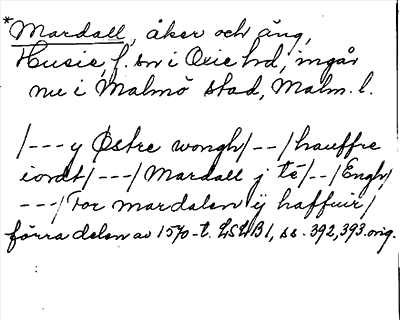 *Mardall, åker och äng,
Husie, f. sn i Oxie hd, ingår
nu i Malmö stad, Malm. l.
/--- y Østre wongh/--/hauffre
iordt/---/Mardall j té/--/Engh/
---/For mardalen ÿ haffuir/
förra delen av 1570-t. LSLB1, ss. 392, 393 orig.